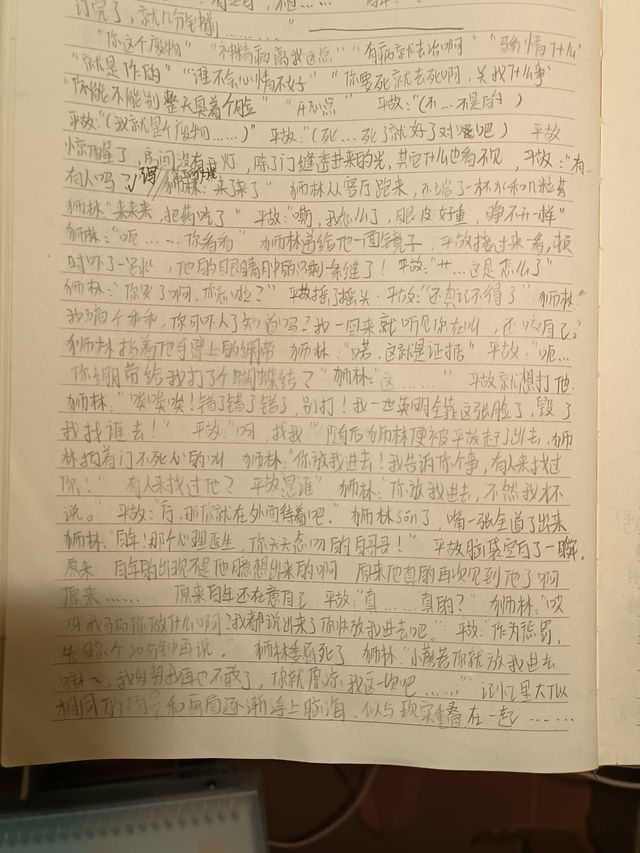 订完了，就几分钟嘛……"
"你这个废物" "神精病离我远点" "有病就去治啊" "矫情什么"
"就是作的" "谁不会心情不好" "你要死就去死啊，关我什么事"
"你能不能别整天臭着个脸" "开心点" 平故："（不…不是的）
平故："（我就是个废物……）" 平故："（死…死了就好了对吧） 平故
惊醒了，房间没有开灯，除了门缝透进来的光，其它什么也看不见，平故："有…
有人吗？" 狮林："来了来了" 狮林从客厅跑来，还端了一杯水和几粒药
狮林："来来来，把药吃了" 平故："嘶，我怎么了，眼皮好重，睁不开一样"
狮林："呃……你看看" 狮林递给他一面镜子，平故接过来一看，顿
时吓了一跳，他的眼睛肿的只剩一条缝了！平故："艹…这是怎么了"
狮林："你哭了啊，你忘啦？" 平故摇了摇头 平故："还真记不得了" 狮林："
我滴个乖乖，你可吓人了知道吗？我一回来就听见你在叫，还咬自己。"
狮林指着他手臂上的绷带 狮林："喏，这就是证据" 平故："呃…
你绷带给我打了个蝴蝶结？" 狮林："这……" 平故就想打他
狮林："唉唉唉！错了错了错了，别打！我一世英明全靠这张脸了，毁了
我找谁去！" 平故："啊，找我" 随后狮林便被平故赶了出去，狮
林拍着门不死心的叫 狮林："你放我进去！我告诉你个事，有人来找过
你！" 有人来找过他？ 平故："是谁" 狮林："你放我进去，不然我不
说。" 平故："行，那你就在外面待着吧。" 狮林son了，嘴一张全道了出来
狮林："白年！那个心理医生，你天天念叨的白哥哥！" 平故脑袋空白了一瞬，
原来 白年的出现不是他臆想出来的啊 原来他真的再次见到他了啊
原来…… 原来白年还在意自己 平故："真……真的？" 狮林："哎
呀我骗你做什么啊？我都说出来了你快放我进去吧。" 平故："作为惩罚，
失踪个20分钟再说。" 狮林委屈死了 狮林："小蘑菇你就放我进去
嘛~，我发誓我再也不敢了，你就原谅我这一次吧……" 记忆里大似
相同的场景和画面逐渐浮上脑海，似与现实重叠在一起……